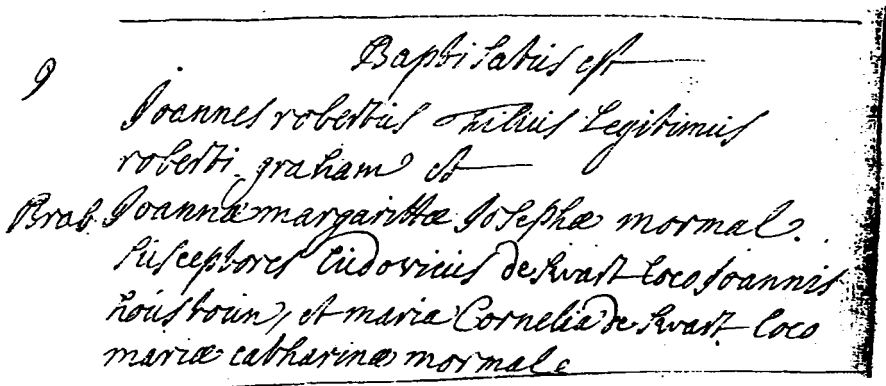 9 Baptisatus est
Joannes robertus filius Legitimus
roberti graham et
Brab. Joannæ margarittæ Josephæ mormal.
susceptores Ludovicus de Kvast loco Joannis
houstoun, et maria Cornelia de Kvast loco
mariæ catharinæ mormal.